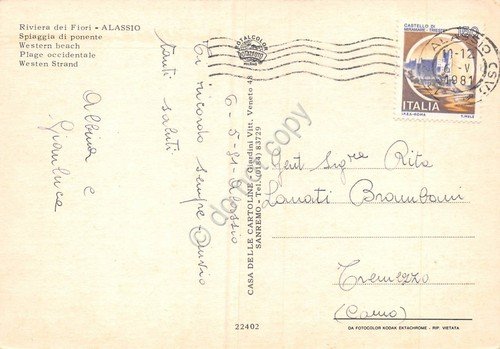 Riviera dei Fiori - ALASSIO
Spiaggia di ponente
Western beach
Plage occidentale
Westen Strand
ROTALCOLOR
MILANO
CASTELLO DI
MIRAMARE - TRIESTE
ALASSIO (SV)
11-12
1981
ITALIA
I.P.Z.S. - ROMA
6-5-81 Alassio
Ti ricordo sempre
tanti saluti
Albina e
Gianluca
CASA DELLE CARTOLINE - Giordini Vitt. Veneto 48
SANREMO - Tel. (0184) 83729
Gent Sigra Rita
Lanati Brambani
Tremezzo
(Como)
22402
DA FOTOCOLOR KODAK EKTACHROME - RIP. VIETATA